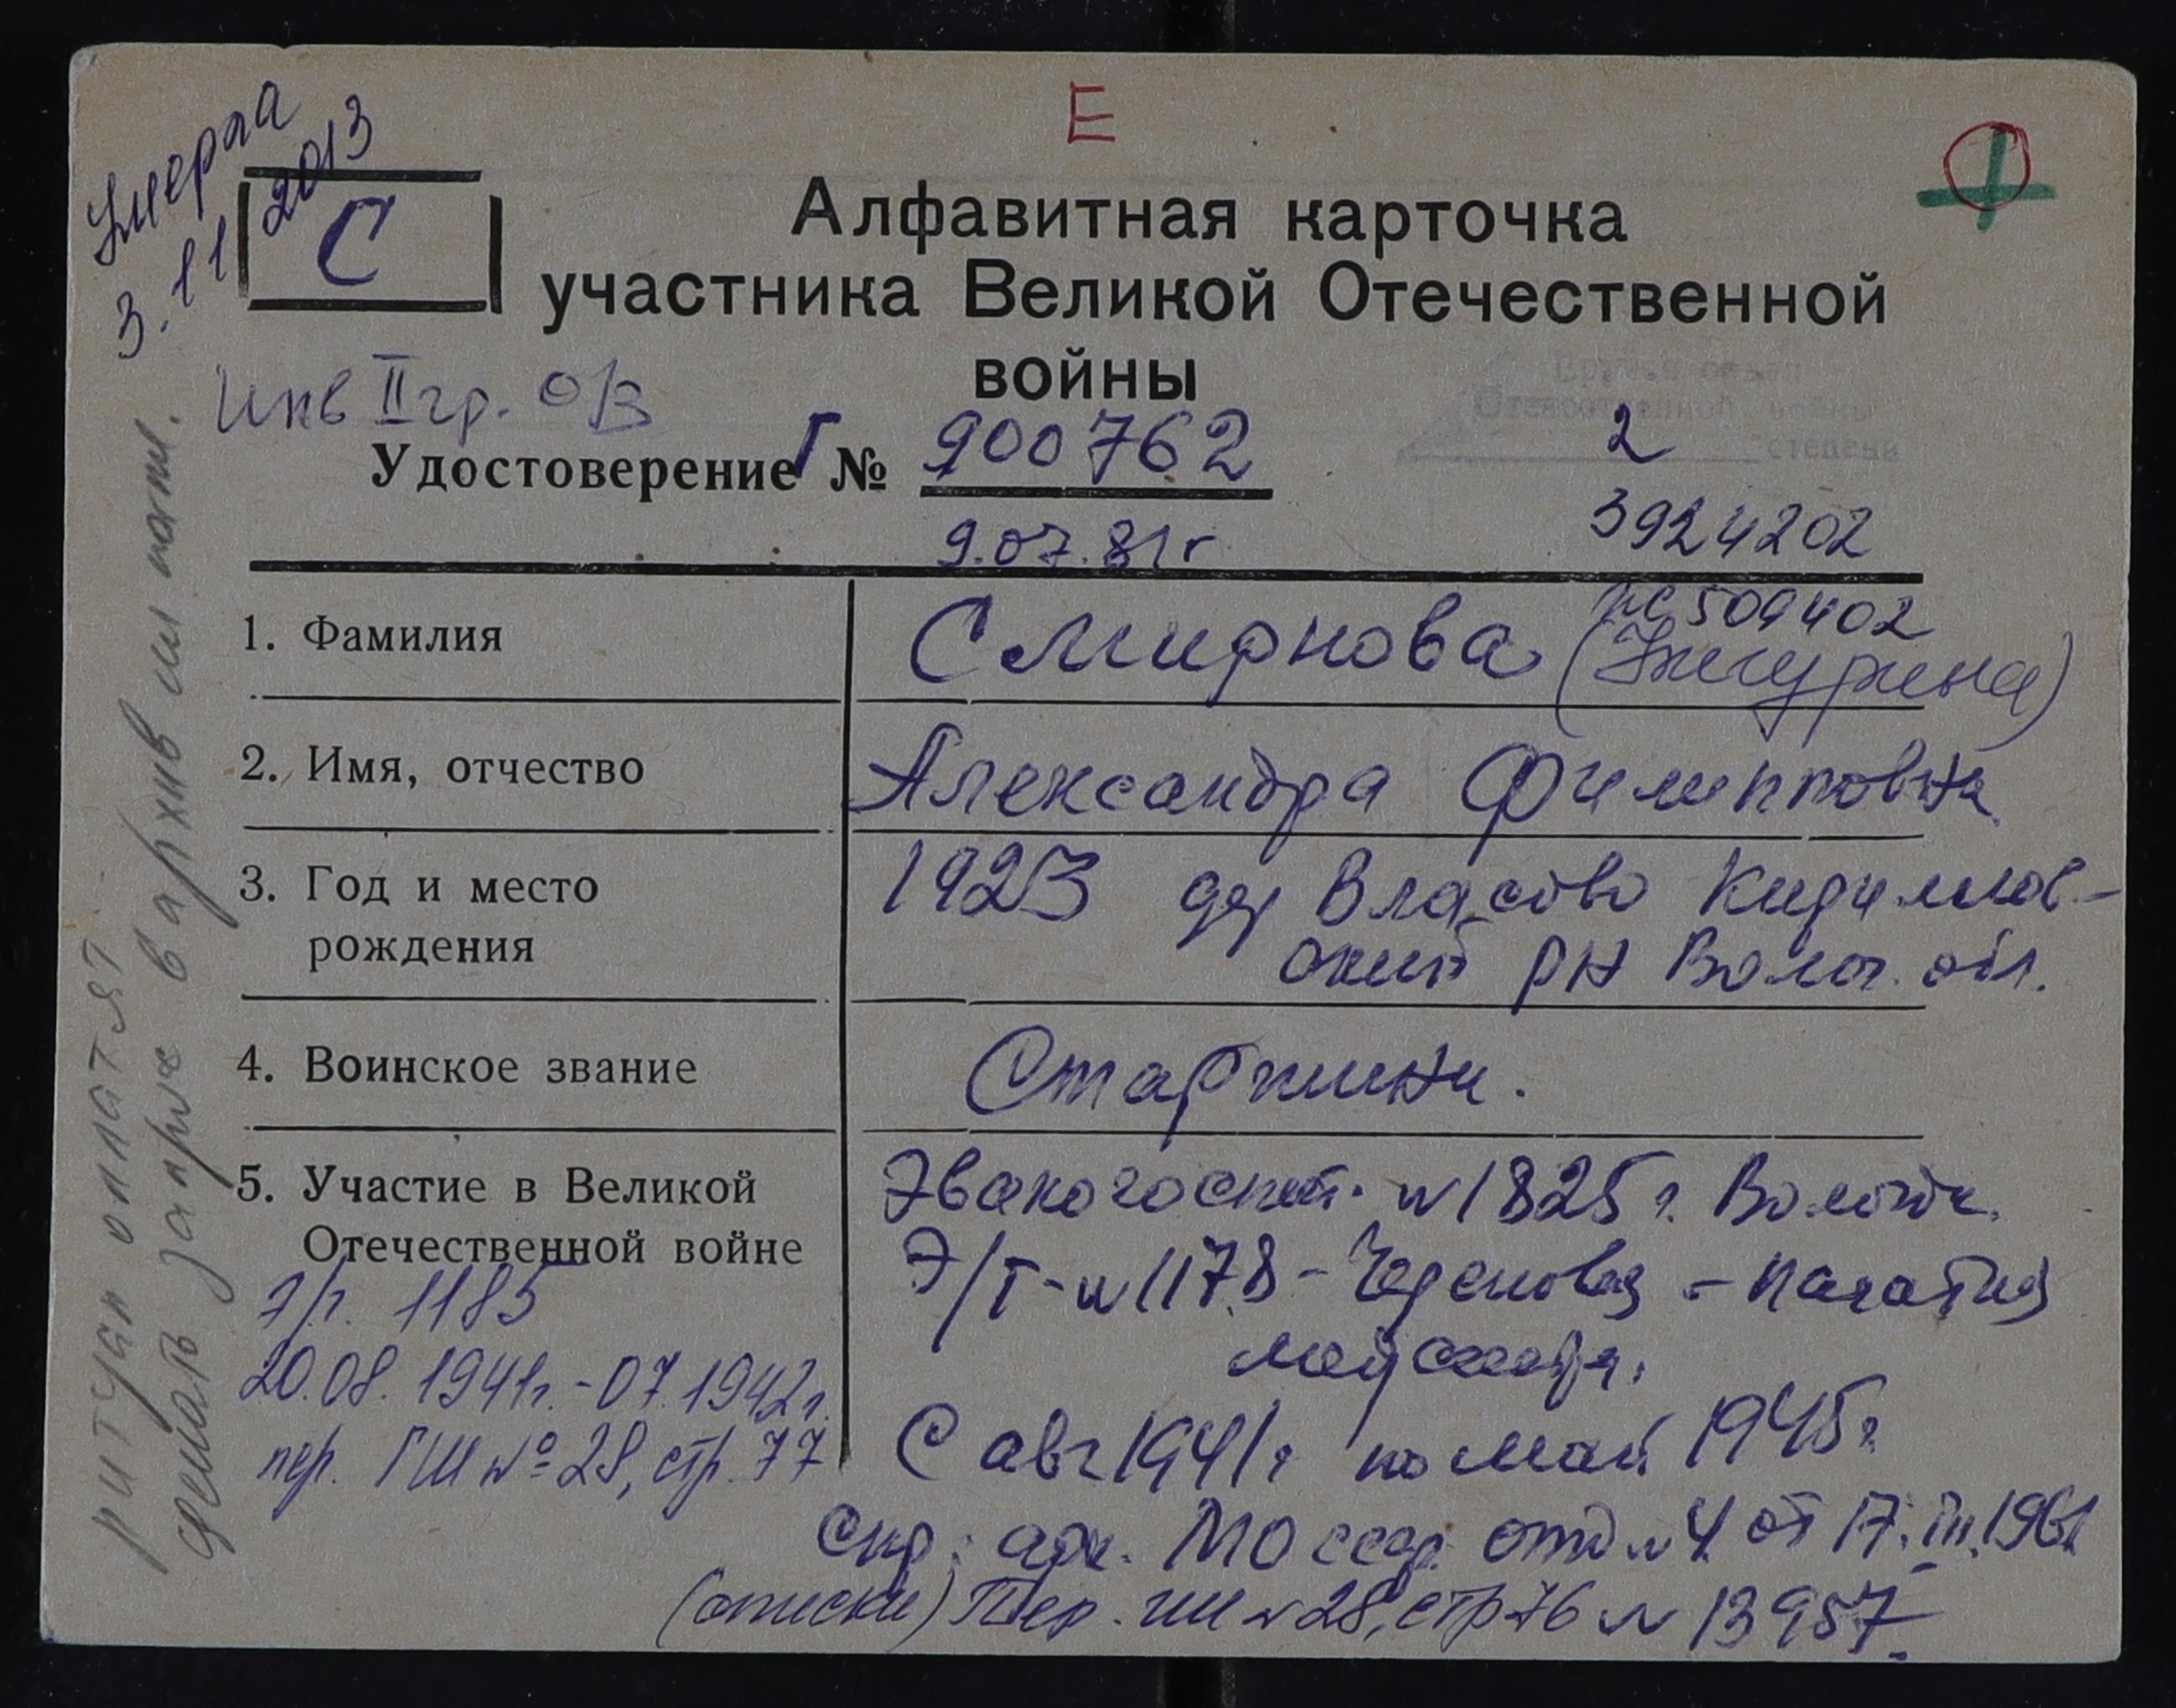 Е
Умерла
3.11 2013
С
Алфавитная карточка
участника Великой Отечественной
войны
Отечественной войны
2 степени
Инв II гр. ОВ
Удостоверение Г № 900762
9.07.81г
3924202
509402
1. Фамилия Смирнова
2. Имя, отчество Александра Филипповна
3. Год и место 1923 дер Власово Кириллов-
рождения ский рн Волог. обл.
4. Воинское звание Старшина.
5. Участие в Великой Эвакогоспит. N 1825 г. Вологда.
Отечественной войне Э/Г-N 1178-Череповец - палатная
медсестра.
э/г. 1185
20.08.1941г.-07.1942г.
пер. ГШ № 28, стр. 77
С авг 1941г по май 1945г
спр. арх. МО ссср отд N 4 от 17.III.1961
(списки) Пер. ГШ N 28, стр 76 N 13957.
ритуал оплатят
сделать запрос в архив ми